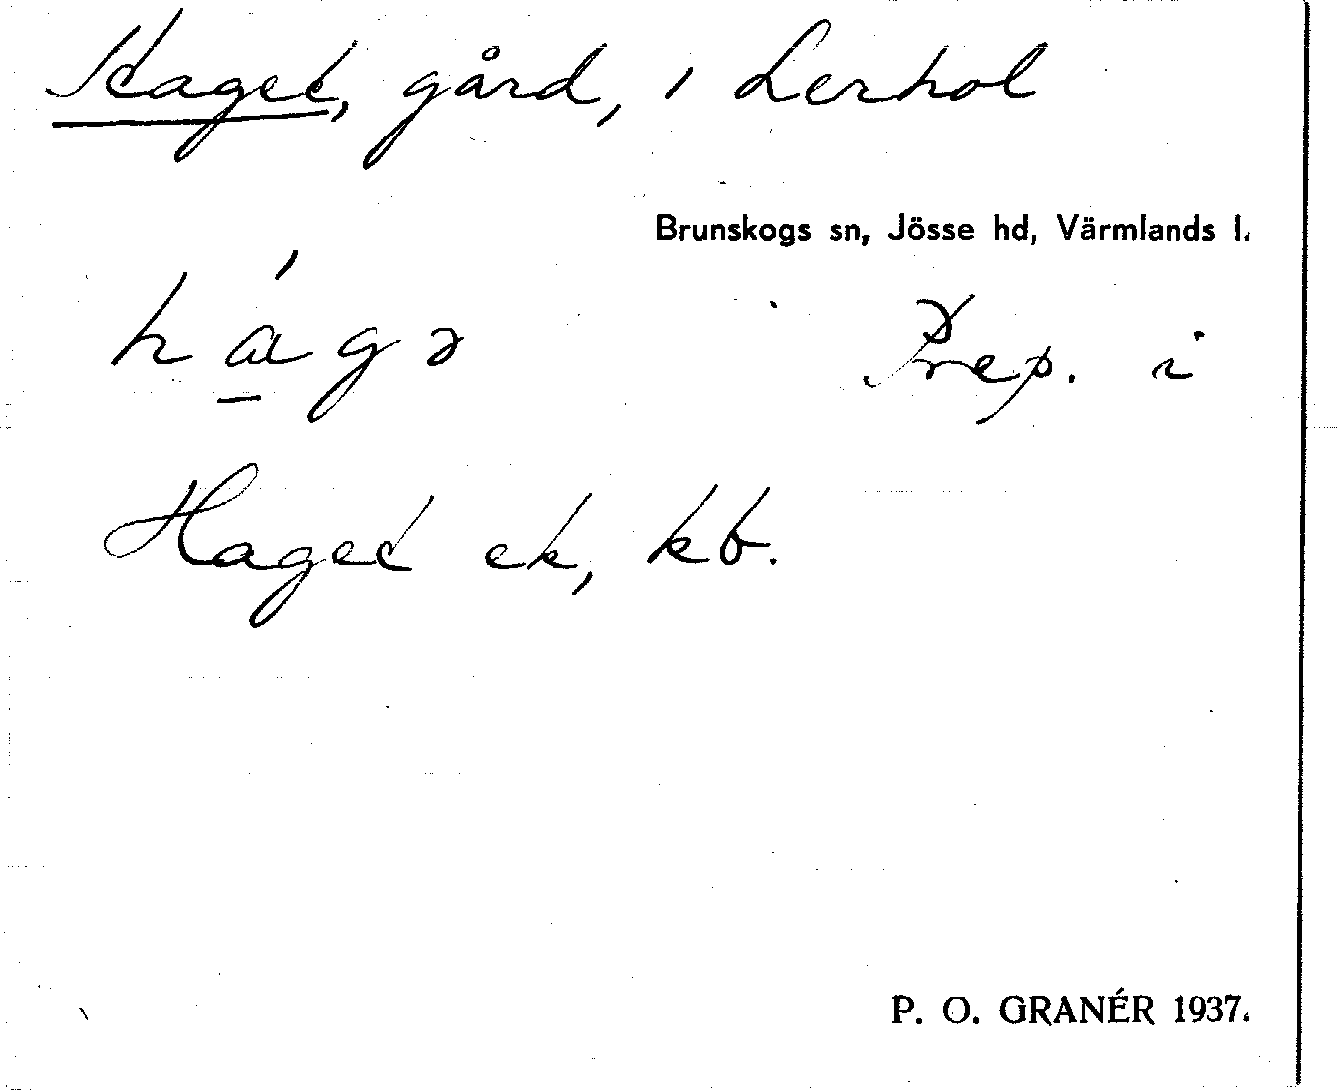 Haget, gård, i Lerhol
Brunskogs sn, Jösse hd, Värmlands l.
hágə Prep. i
Haget ek, kb.
P. O. GRANÉR 1937.